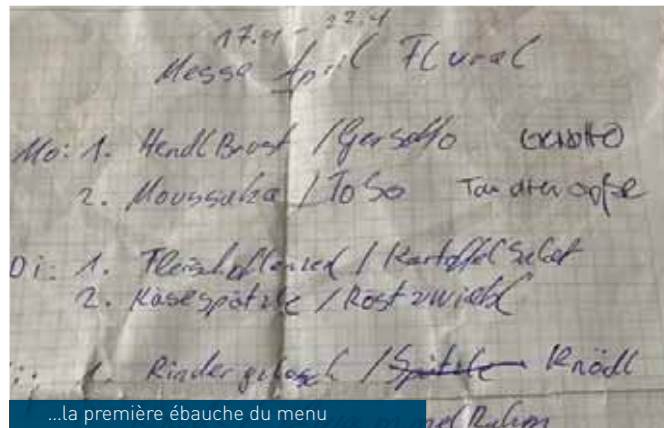 17.4 - 22.4
Messe April
Mo: 1. Hendl Brust / Gersotto
2. Moussaka / ToSo
Di: 1. Fleischpflanzerl / Kartoffel Salat
2. Käsespätzle / Röstzwiebel
1. Rindergulasch / Spätzle Knödl
...la première ébauche du menu
Rahm